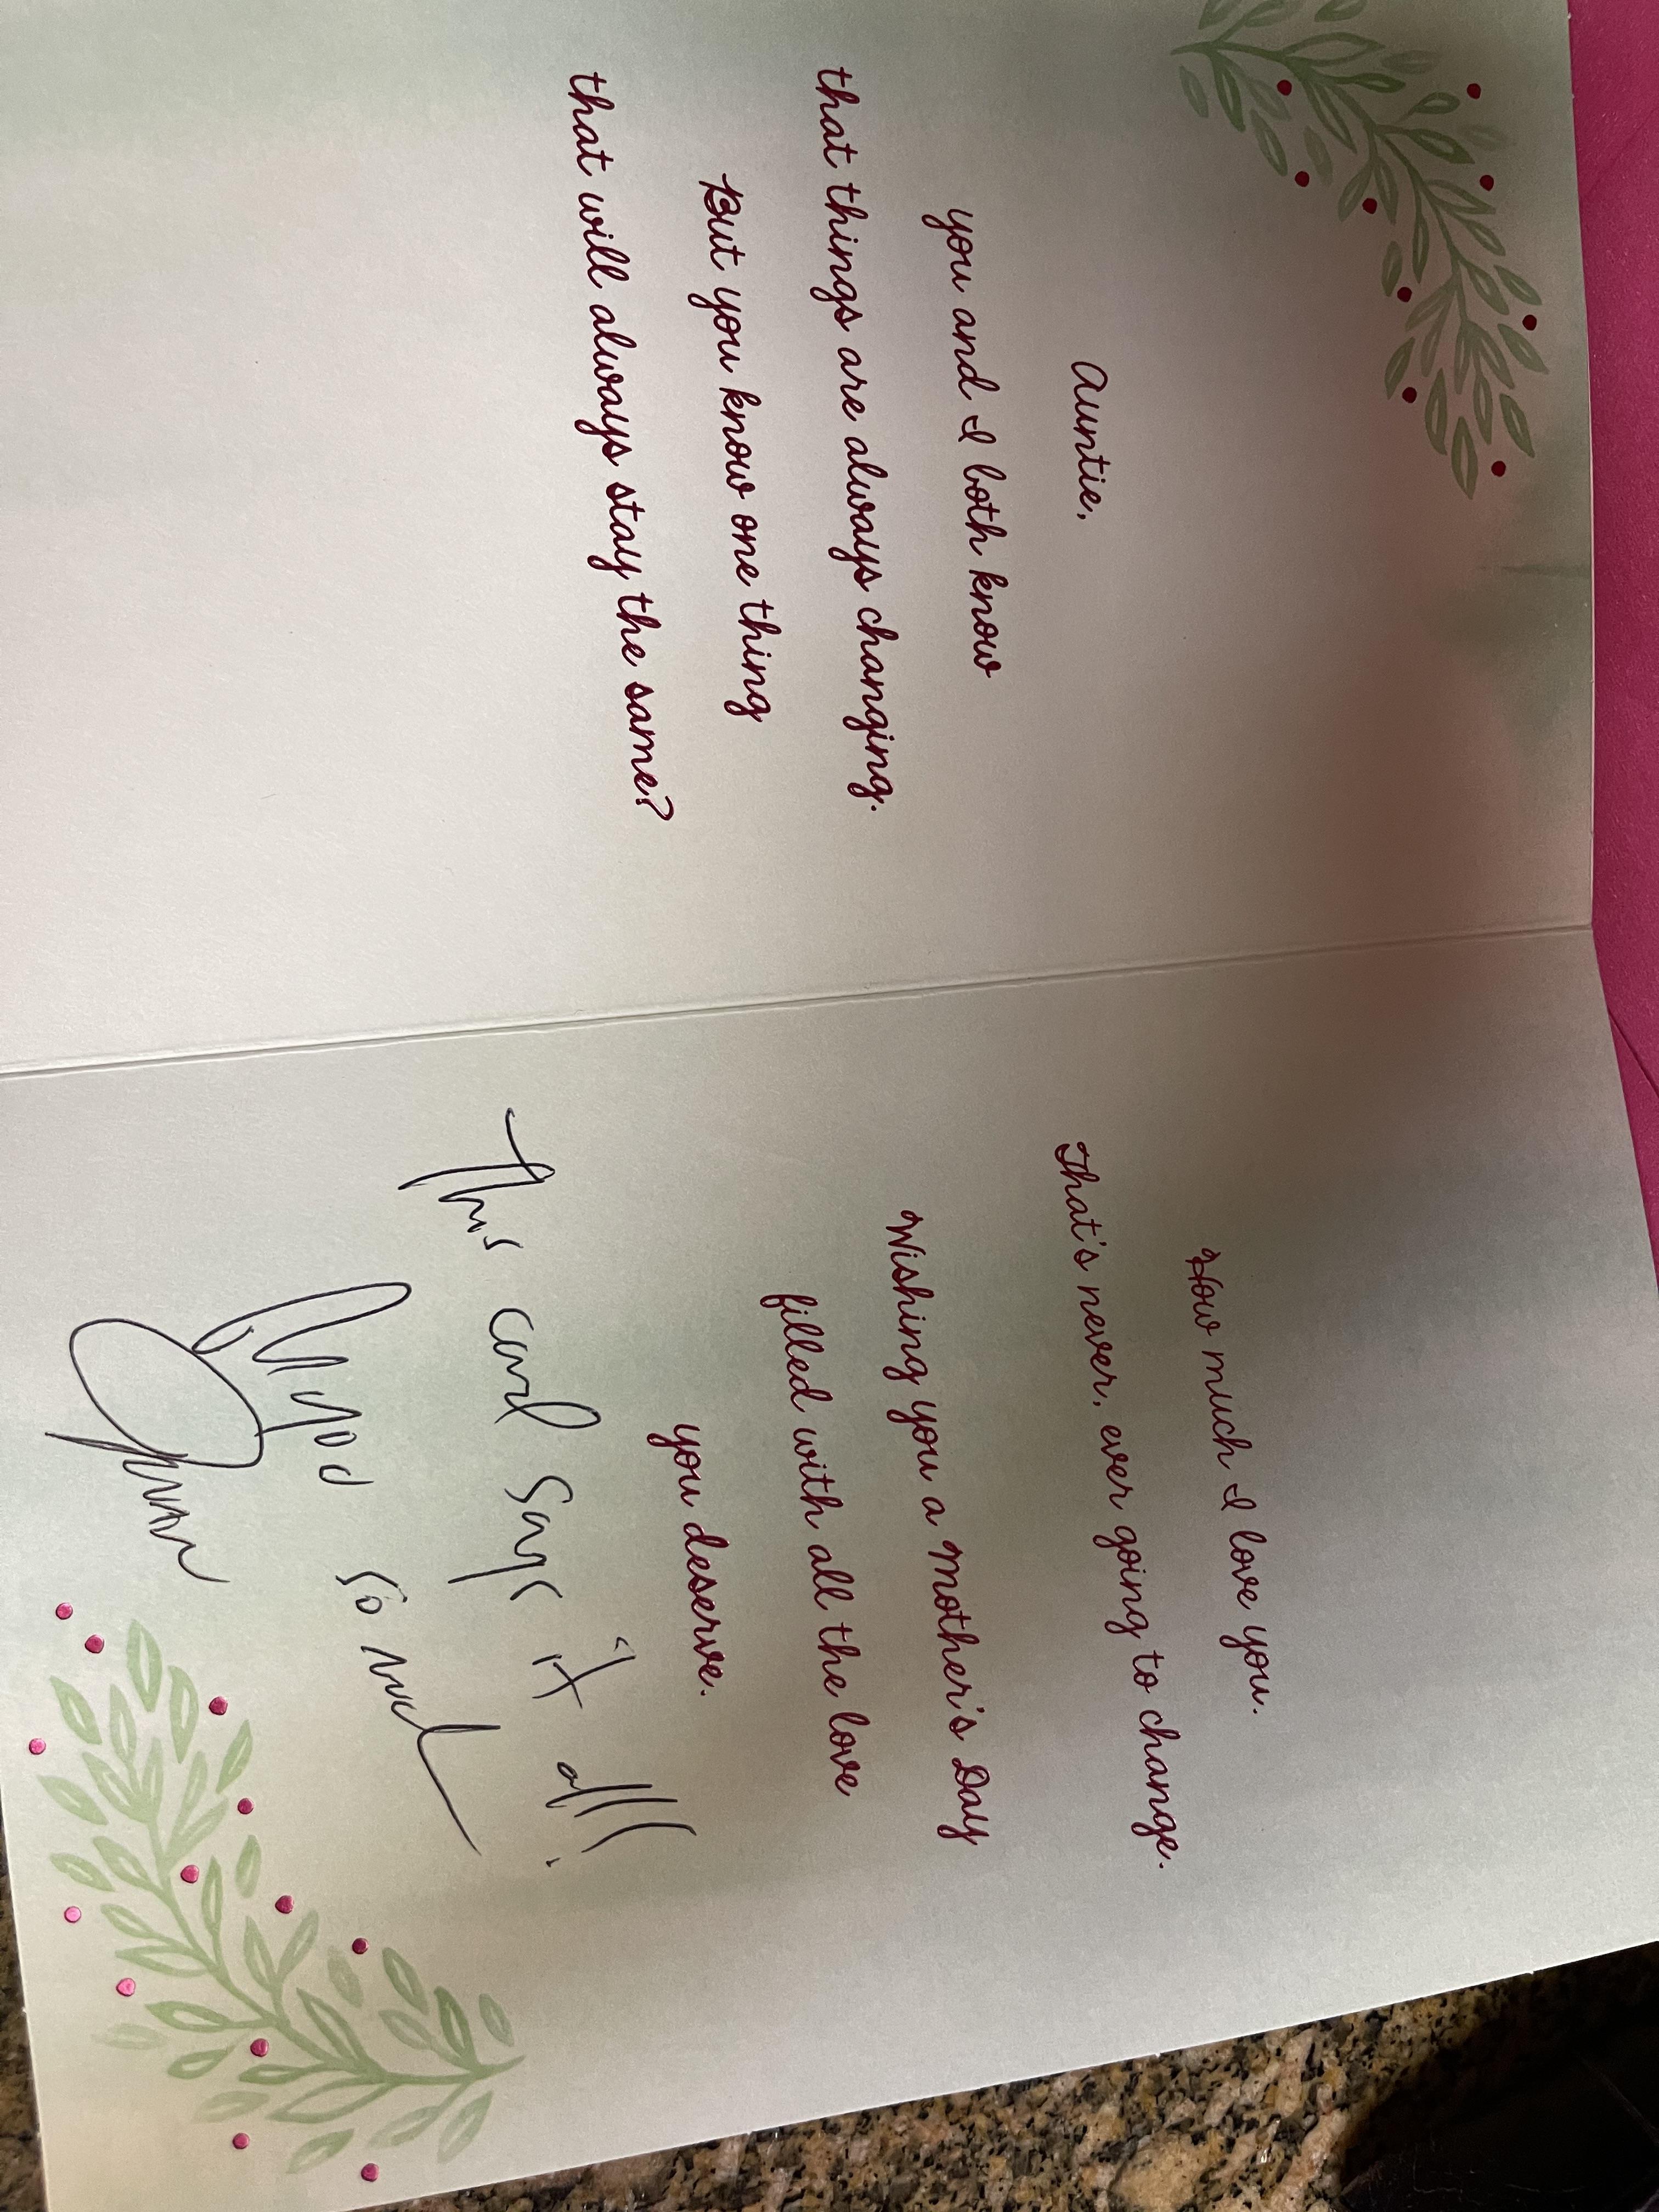 Auntie,
you and I both know
that things are always changing.
But you know one thing
that will always stay the same?
How much I love you.
That's never, ever going to change.
Wishing you a Mother's Day
filled with all the love
you deserve.
This card says it all!
so much